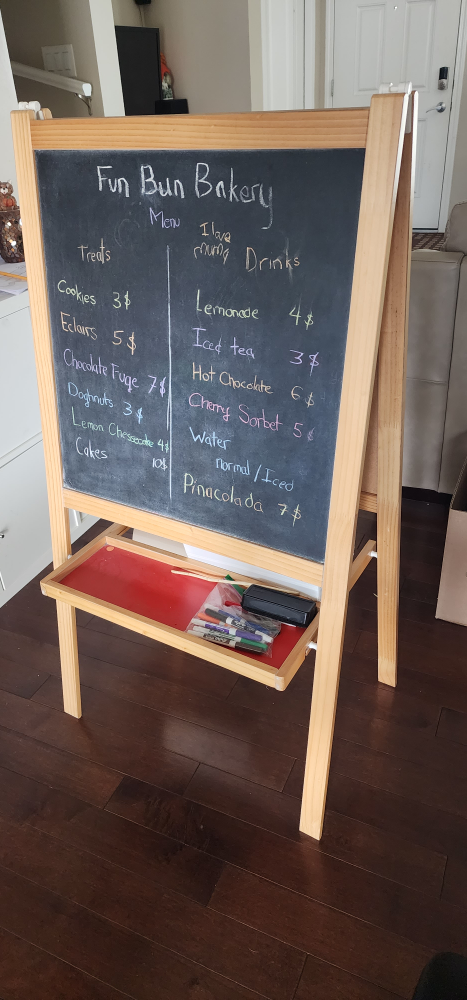 Fun Bun Bakery
Menu
I love
mumy
Treats
Cookies 3$
Eclairs 5$
Chocolate Fuge 7$
Doghnuts 3$
Lemon Chesecake 4$
Cakes 10$
Drinks
Lemonade 4$
Iced tea 3$
Hot Chocolate 6$
Cherry Sorbet 5$
Water
normal/Iced
Pinacolada 7$